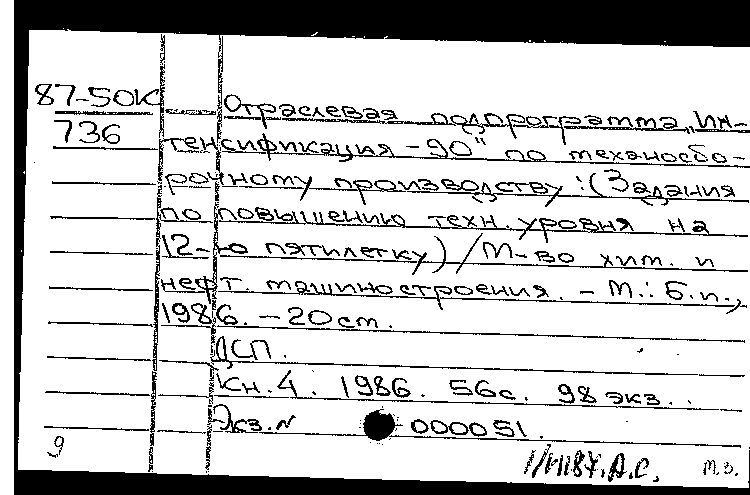 87-50К Отраслевая подпрограмма „Ин-
736 тенсификация -90" по механосбо-
рочному производству :(Задания
по повышению техн. уровня на
12-ю пятилетку) / М-во хим. и
нефт. машиностроения. - М.: Б.и.,
1986. - 20 см.
ДСП.
Кн. 4. 1986. 56с. 98 экз.
Экз. N 000051.
9
А.С. м.з.